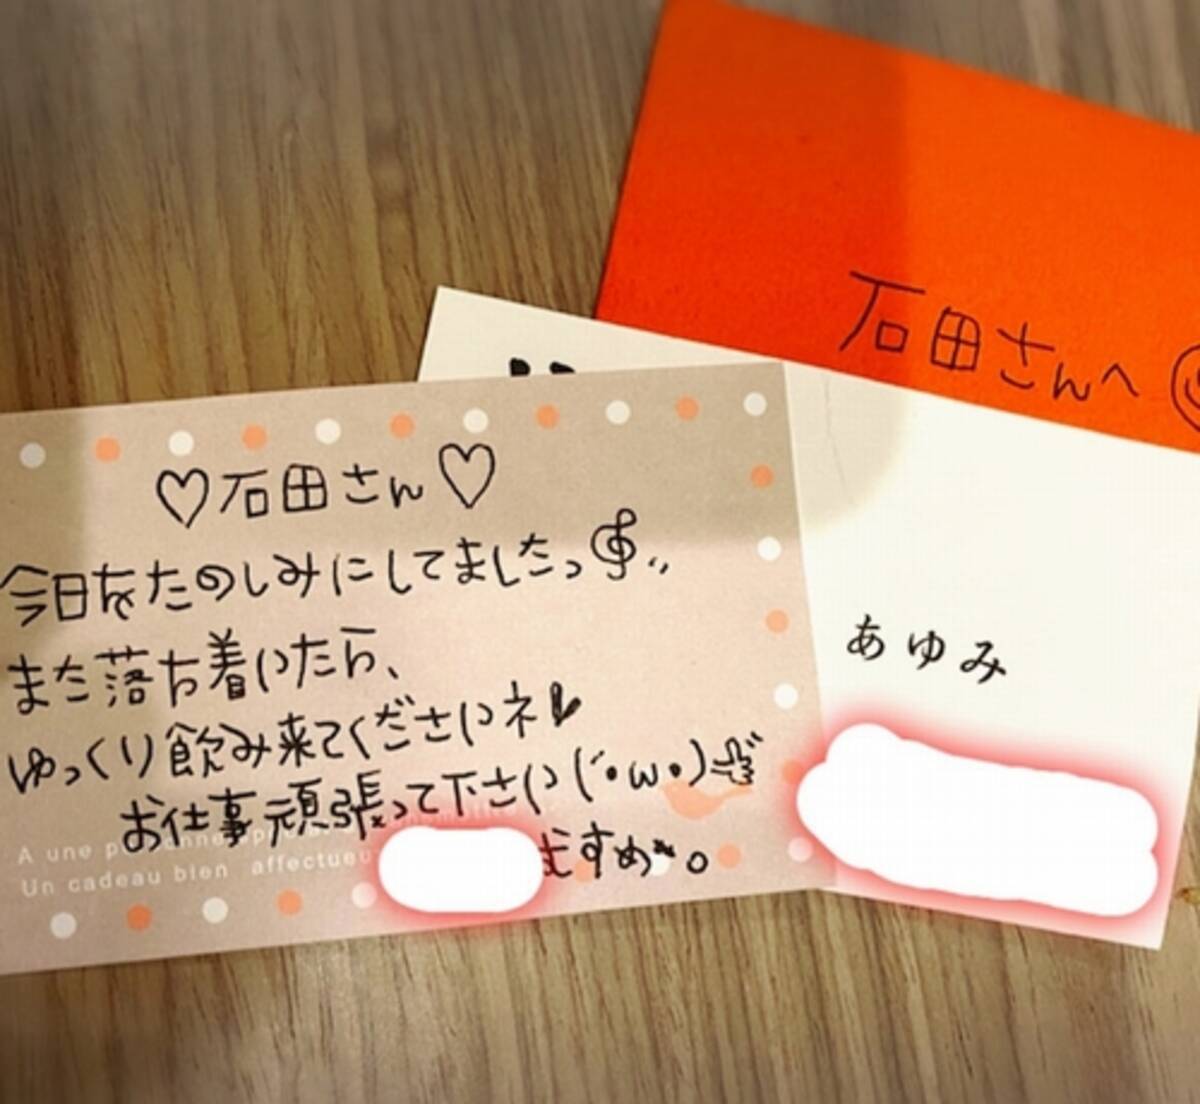 石田さんへ
♡石田さん♡
今日をたのしみにしてましたっ
また落ち着いたら、
ゆっくり飲み来てくださいネ♥
お仕事頑張って下さい(´・ω・)
むすめ〜。
A une p
Un cadeau bien affectueu
あゆみ